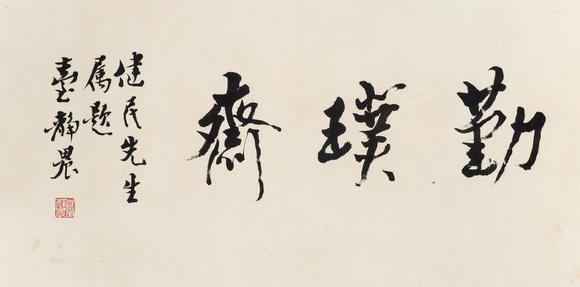 勤璞齋
健民先生
属題
臺靜農